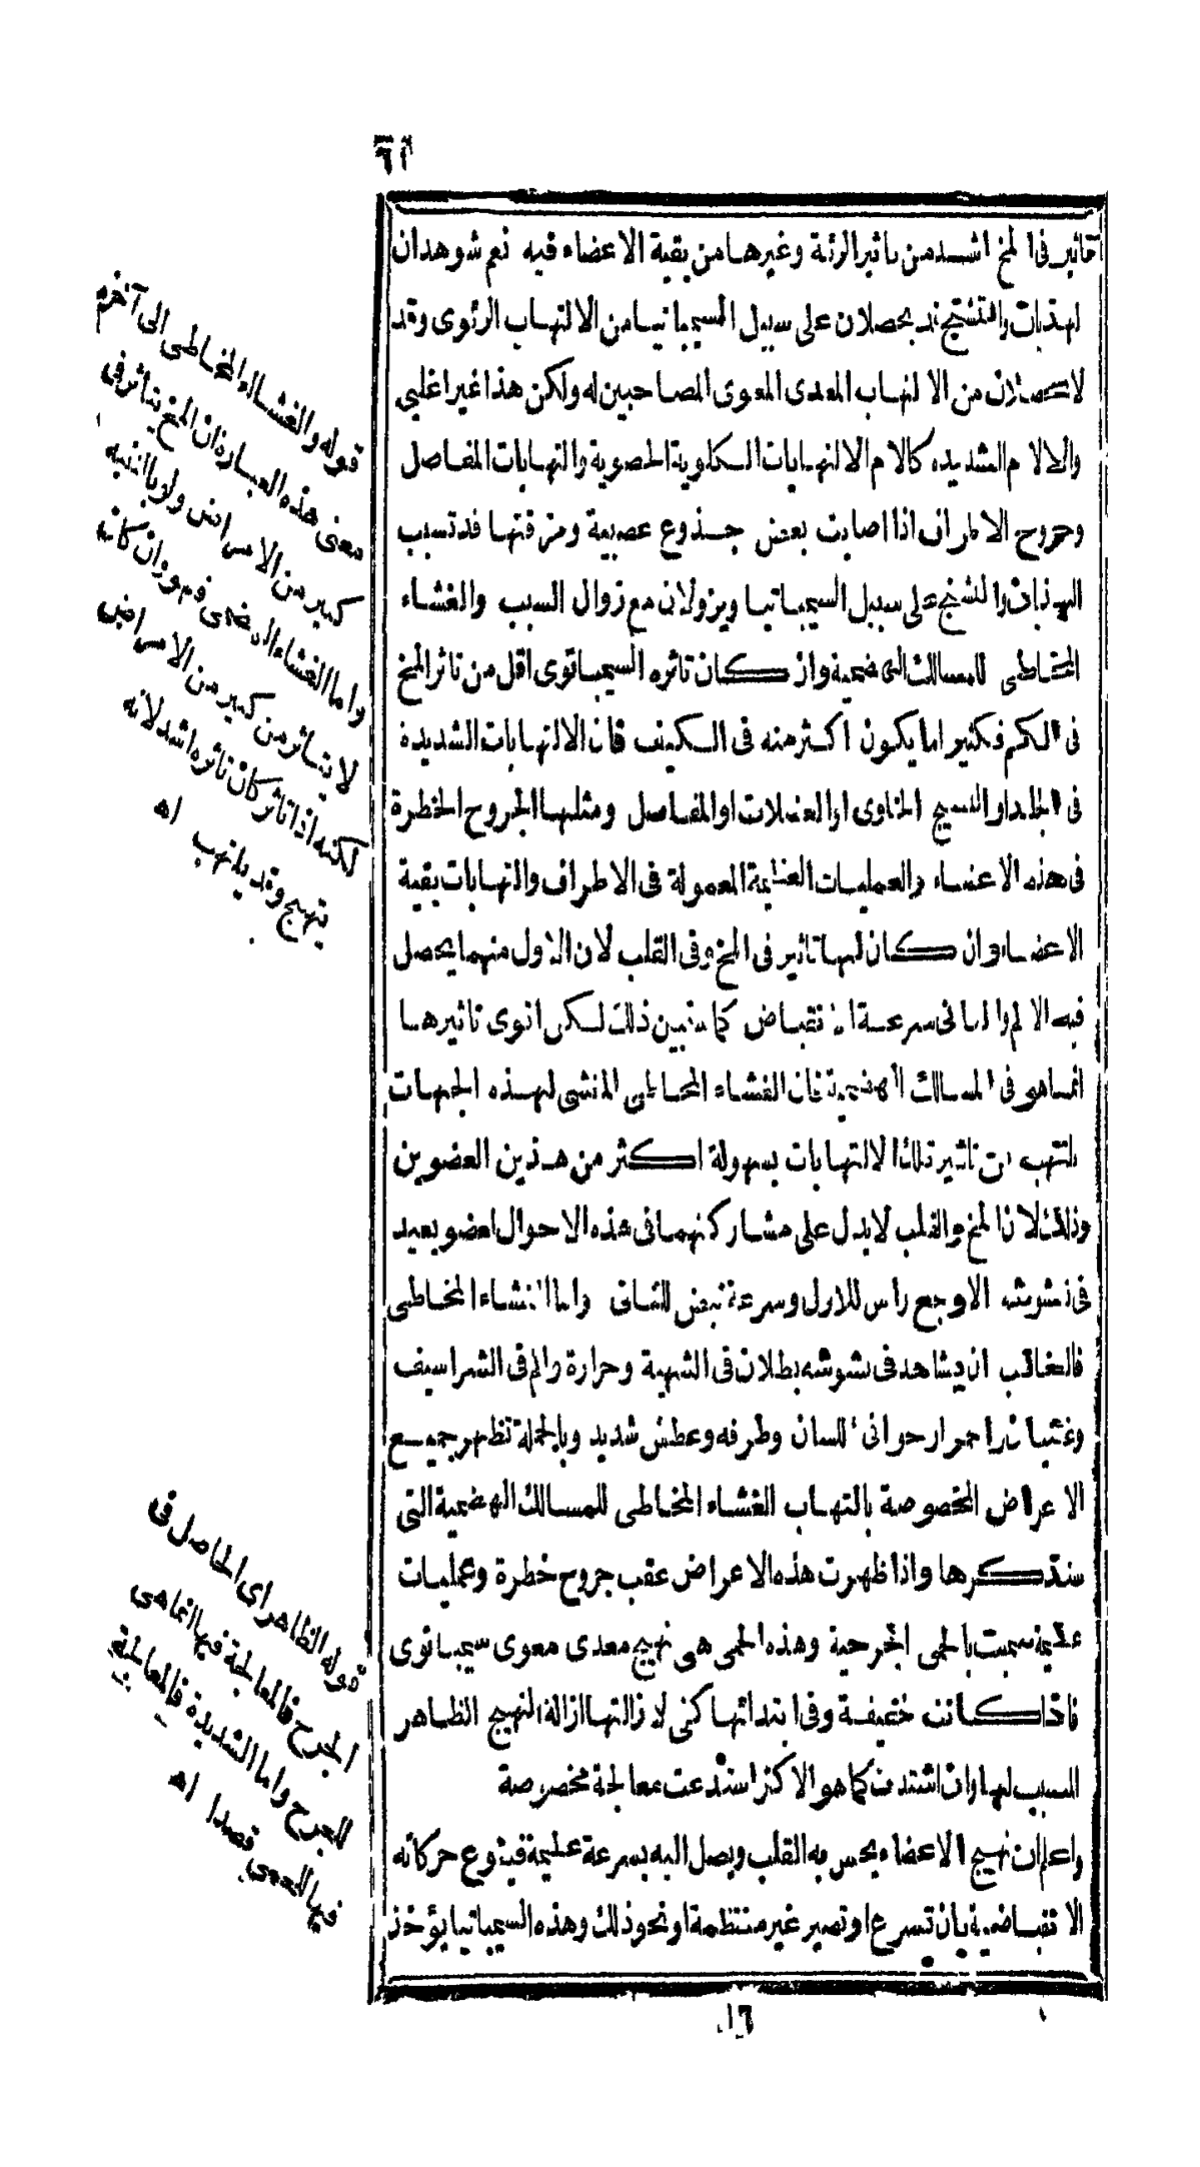 تأثير فى المخ اشد من تاثير الرئة وغيرها من بقية الاعضاء فيه نعم شوهدان
الهذيان والتشنج قد يحصلان على سبيل السيمباتيا من الالتهاب الرئوى وقد
لا يحصلان من الالتهاب المعدى المعوى المصاحبين له ولكن هذا غير اغلبى
والالام الشديده كالام الالتهابات الكلوية الحصوية والتهابات المفاصل
وجروح الاطراف اذا اصابت بعض جذوع عصبية ومزقتها قد تسبب
الهذيان والتشنج على سبيل السيمباتيا ويزولان مع زوال السبب والغشاء
المخاطى للمسالك الهضمية وان كان تاثره السيمباتوى اقل من تاثر المخ
فى الكم فكثيرا ما يكون اكثر منه فى الكيف فان الالتهابات الشديدة
فى الجلد او النسيج الخلوى او العضلات او المفاصل ومثلها الجروح الخطرة
فى هذه الاعضاء والعمليات العظيمة المعمولة فى الاطراف والتهابات بقية
الاعضاء وان كان لها تاثير فى المخ وفى القلب لان الاول منهما يحصل
فيه الالم والثانى سرعة انقباض كما سنبين ذلك لكن اقوى تاثيرها
انما هو فى المسالك الهضمية فان الغشاء المخاطى المغشى لهذه الجهات
يلتهب من تاثير تلك الالتهابات بسهولة اكثر من هذين العضوين
وذلك لان المخ والقلب لا يدل على مشاركتهما فى هذه الاحوال لعضو بعيد
فى تشوشه الا وجع راس للاول وسرعة نبض للثانى واما الغشاء المخاطى
فالغالب ان يشاهد فى تشوشه بطلان فى الشهية وحرارة والم فى الشراسيف
وغثيان واحمرار حوافى اللسان وطرفه وعطش شديد وبالجملة تظهر جميع
الاعراض المخصوصة بالتهاب الغشاء المخاطى للمسالك الهضمية التى
سنذكرها واذا ظهرت هذه الاعراض عقب جروح خطرة وعمليات
عظيمة سميت بالحمى الجرحية وهذه الحمى هى تهيج معدى معوى سيمباتوى
فاذا كانت خفيفة وفى ابتدائها كفى لازالتها ازالة التهيج الظاهر
المسبب لها وان اشتدت كما هو الاكثر استدعت معالجة مخصوصة
واعلم ان تهيج الاعضاء يحس به القلب ويصل اليه بسرعة عظيمة فيتنوع حركاته
الانقباضية بان تسرع او تصير غير منتظمة او نحو ذلك وهذه السيمباتيا يؤخذ
قوله والغشاء المخاطى الى آخره
معنى هذه العبارة ان المخ يتاثر فى
كثير من الامراض ولو بالتنبيه
واما الغشاء الهضمى فهو وان كان
لا يتاثر من كثير من الامراض
لكنه اذا تاثر كان تاثره اشد لانه
يتهيج وقد يلتهب اه
قوله الظاهر اى الحاصل فى
الجرح فالمعالجة فيها انما هى
للجرح واما الشديدة فالمعالجة
فيها للحمى قصدا اه